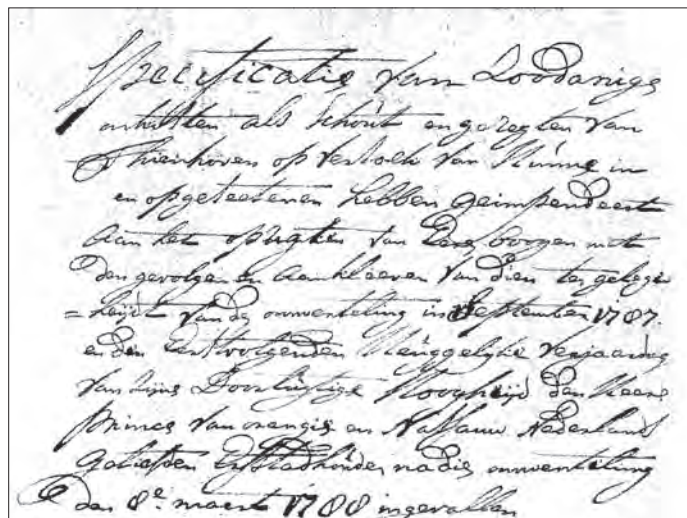 Specificatie van Zoodanige
onkosten als Schout en geregten van
Thienhoven op versoek van Heume in
en opgeseetenen hebben geimpendeert
aan het opregten van Eere boogen met
den gevolgen en aankleeven van dien ter gelegen
= heijt van de omwenteling in September 1787.
en den Eerstvolgenden Heuggelijke verjaardag
van zijne Doorlugtige Hoogheijd den Heere
prince van orangie en Nassauw Nederlands
geliefden Erfstadhouder na die omwenteling
den 8e. maert 1788 ingevallen